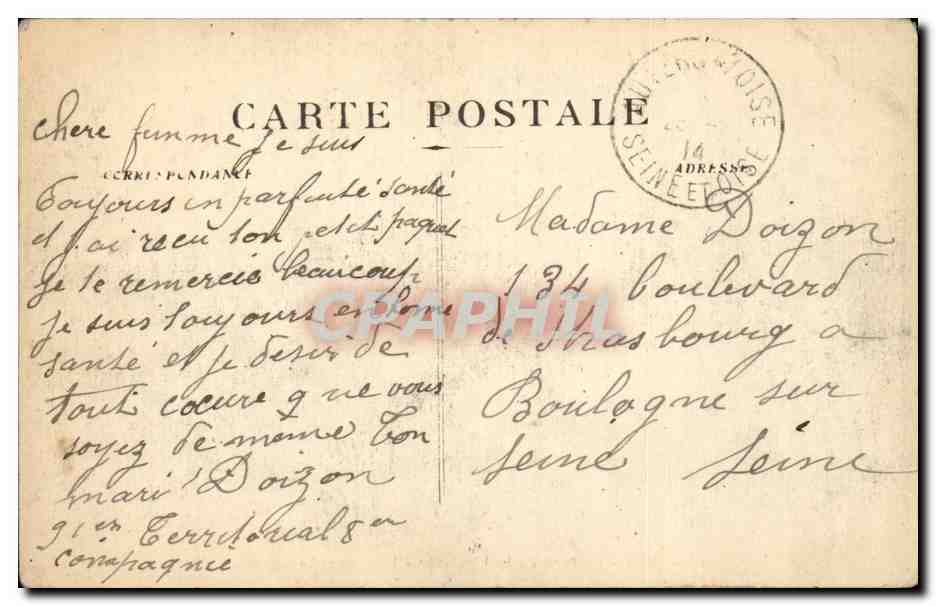 CARTE POSTALE
CORRESPONDANCE
ADRESSE
OISE
14
SEINE ET OISE
chere funme je suis
Toujours in parfaite santé
et j'ai recu ton petit paquet
je te remercie beaucoup
je suis toujours en bonne
santé et je desir de
tout cœure que vous
soyez de meme Ton
mari Doizon
91 em Territorial 8 em
compagnie
Madame Doizon
134 boulevard
de Strasbourg a
Boulogne sur
seine seine
CPAPHIL